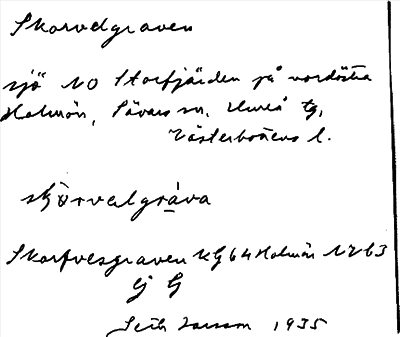 Skorvelgraven
sjö NO Storfjärden på nordöstra
Holmön, Sävars sn, Umeå tg,
Västerbottens l.
skorvelgrava
Skorfvesgraven Kg 64 Holmön 1763
Ej G
Seth Jansson 1935